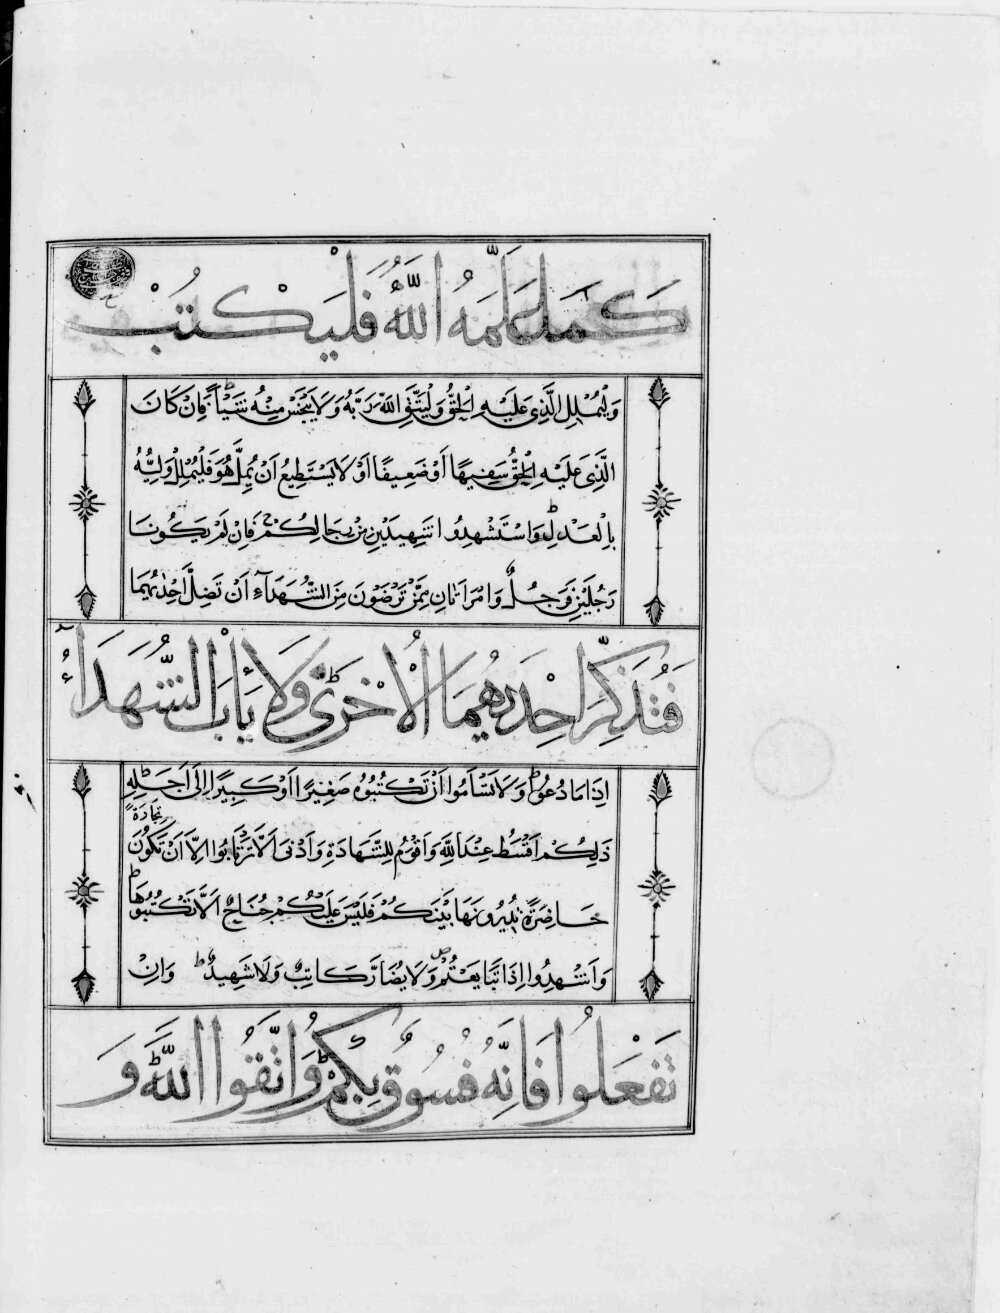 كَمَا عَلَّمَهُ اللّٰهُ فَلْيَكْتُبْ
وَلْيُمْلِلِ الَّذِي عَلَيْهِ الْحَقُّ وَلْيَتَّقِ اللّٰهَ رَبَّهُ وَلَا يَبْخَسْ مِنْهُ شَيْئًا ط فَاِنْ كَانَ
الَّذِي عَلَيْهِ الْحَقُّ سَفِيهًا اَوْ ضَعِيفًا اَوْ لَا يَسْتَطِيعُ اَنْ يُمِلَّ هُوَ فَلْيُمْلِلْ وَلِيُّهُ
بِالْعَدْلِ ط وَاسْتَشْهِدُوا شَهِيدَيْنِ مِنْ رِجَالِكُمْ ج فَاِنْ لَمْ يَكُونَا
رَجُلَيْنِ فَرَجُلٌ وَامْرَاَتَانِ مِمَّنْ تَرْضَوْنَ مِنَ الشُّهَدَآءِ اَنْ تَضِلَّ اِحْدٰيهُمَا
فَتُذَكِّرَ اِحْدٰيهُمَا الْاُخْرٰى ط وَلَا يَأْبَ الشُّهَدَآءُ
اِذَا مَا دُعُوا ط وَلَا تَسْاَمُوا اَنْ تَكْتُبُوهُ صَغِيرًا اَوْ كَبِيرًا اِلَى اَجَلِهِ ط
ذٰلِكُمْ اَقْسَطُ عِنْدَ اللّٰهِ وَاَقْوَمُ لِلشَّهَادَةِ وَاَدْنٰى اَلَّا تَرْتَابُوا اِلَّا اَنْ تَكُونَ تِجَارَةً
حَاضِرَةً تُدِيرُونَهَا بَيْنَكُمْ فَلَيْسَ عَلَيْكُمْ جُنَاحٌ اَلَّا تَكْتُبُوهَا ط
وَاَشْهِدُوا اِذَا تَبَايَعْتُمْ ص وَلَا يُضَارَّ كَاتِبٌ وَلَا شَهِيدٌ ط وَاِنْ
تَفْعَلُوا فَاِنَّهُ فُسُوقٌ بِكُمْ ط وَاتَّقُوا اللّٰهَ ط وَ